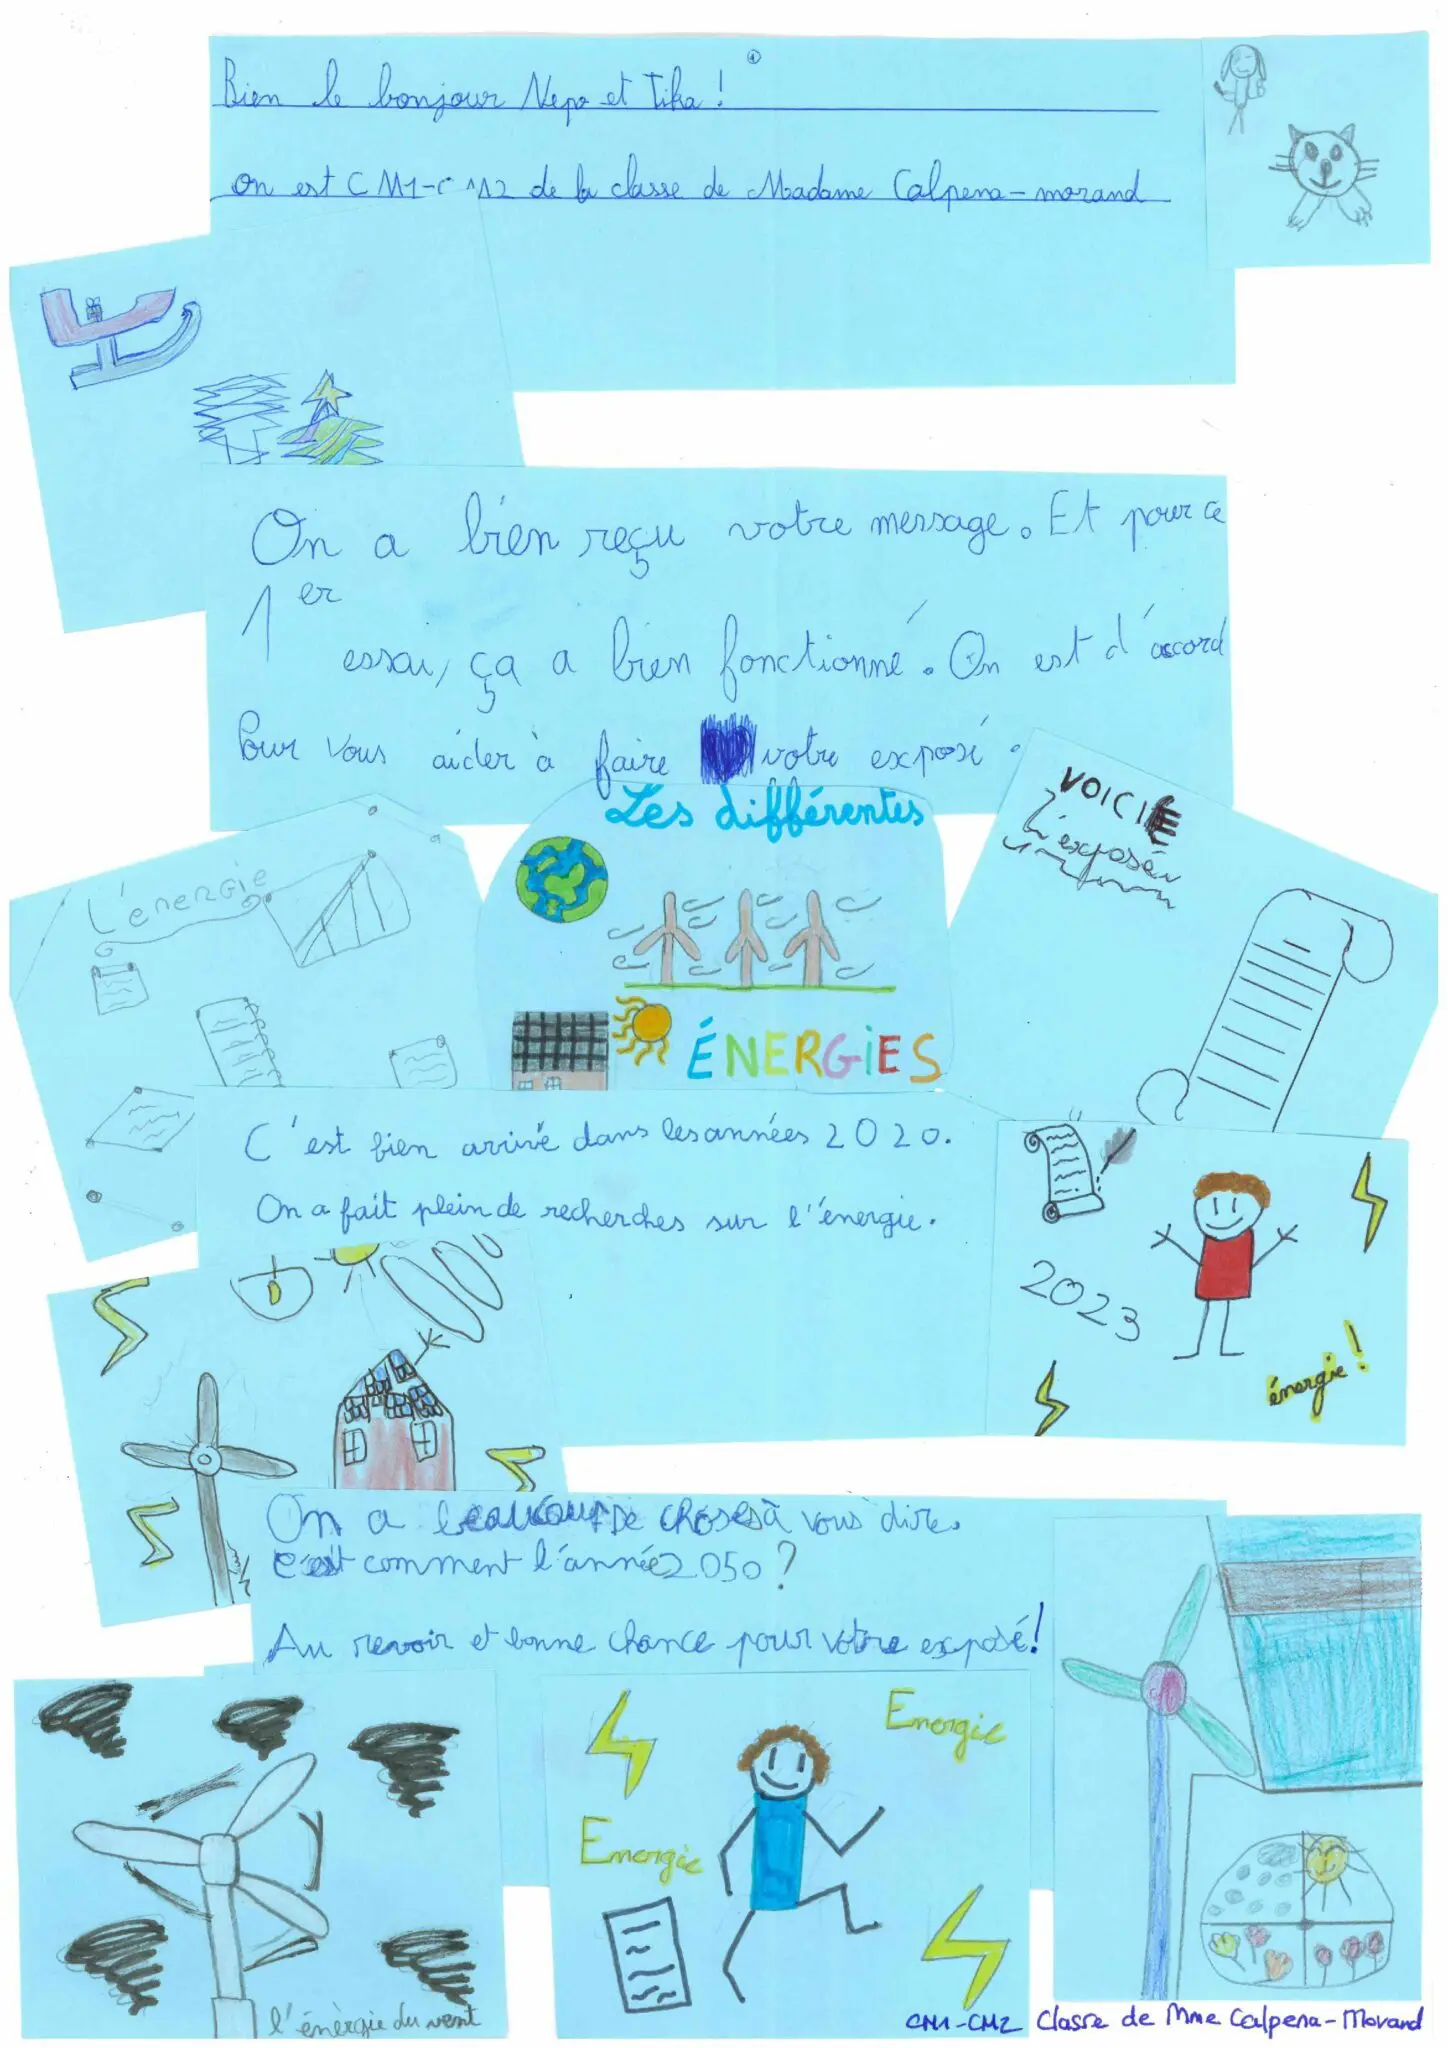 Bien le bonjour Nepo et Tika !
on est CM1-CM2 de la classe de Madame Calpena-morand
On a bien reçu votre message. Et pour ce
1er
essai, ça a bien fonctionné. On est d'accord
Pour vous aider à faire votre exposé.
Les différentes
ÉNERGIES
L'énergie
VOICI
L'exposé
C'est bien arrivé dans les années 2020.
On a fait plein de recherches sur l'énergie.
2023
énergie !
On a beaucoup de choses à vous dire.
C'est comment l'année 2050 ?
Au revoir et bonne chance pour votre exposé !
Energie
Energie
l'énèrgie du vent
CM1-CM2 Classe de Mme Calpena-Morand